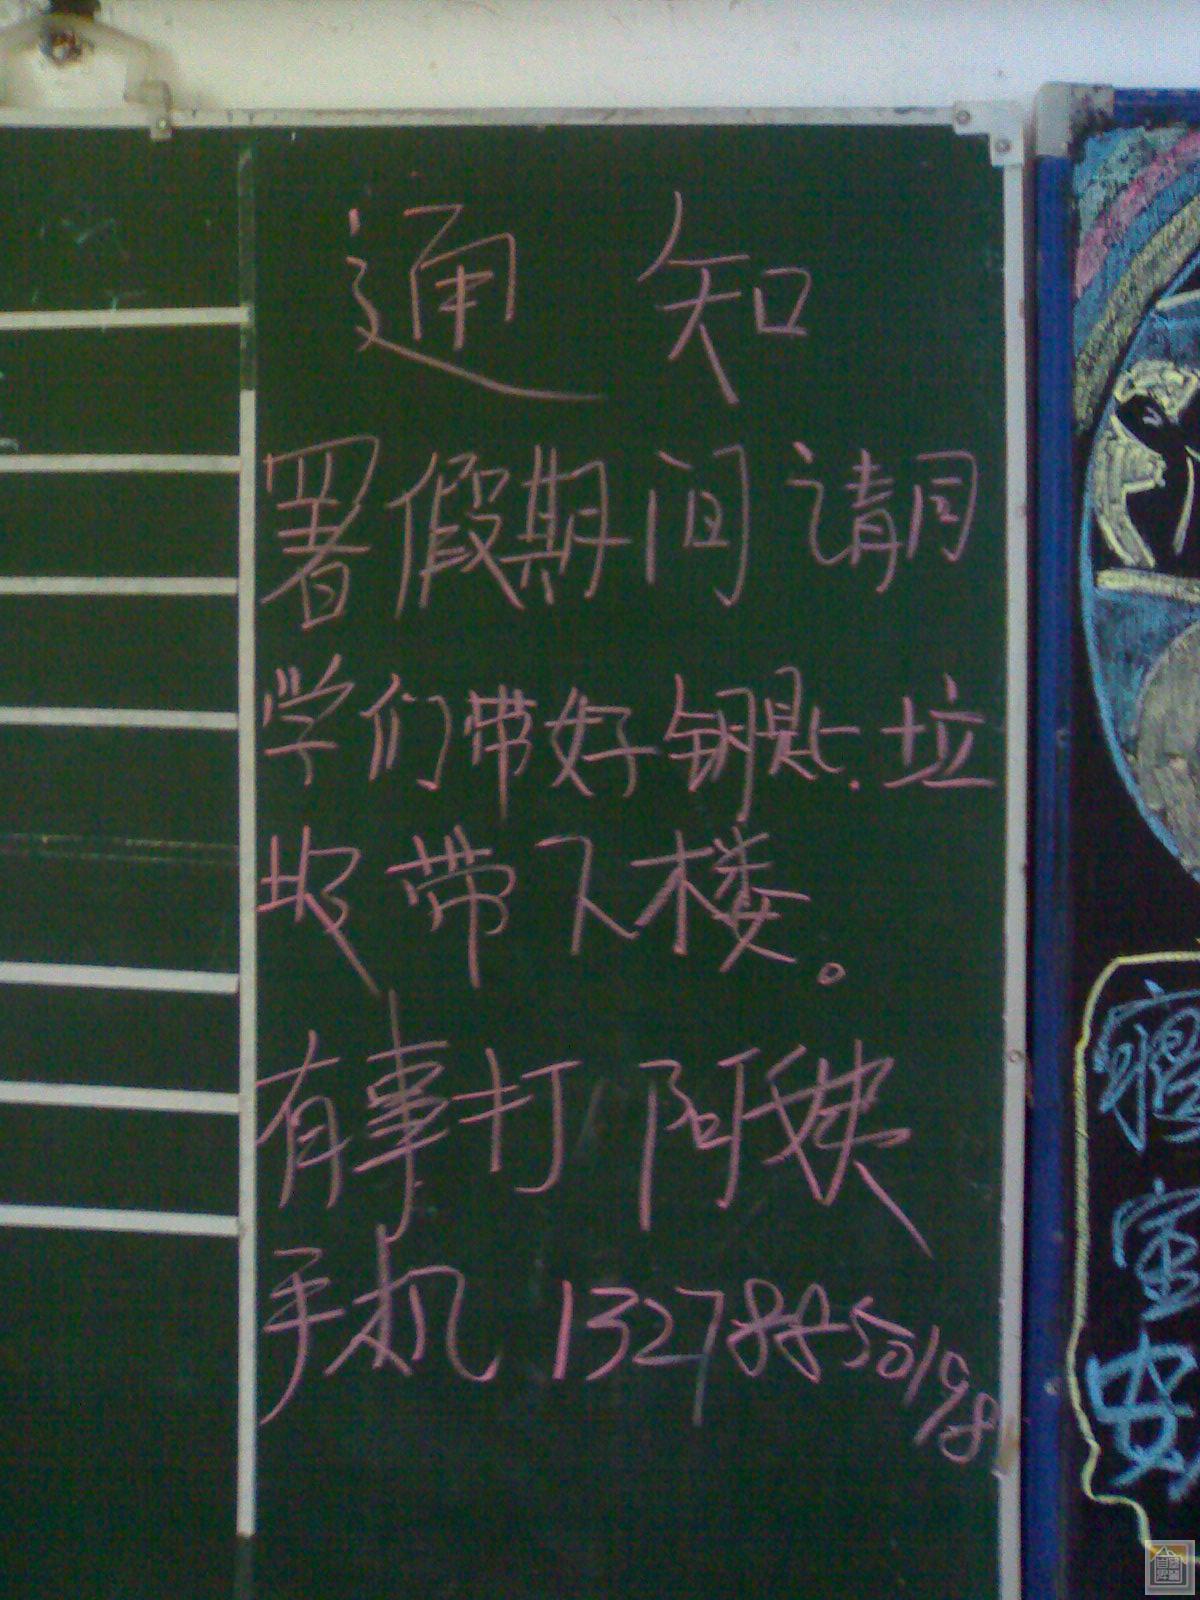 通知
署假期间请同
学们带好钥匙.垃
圾带下楼。
有事打阿姨
手机 13278850198
寝
室
安